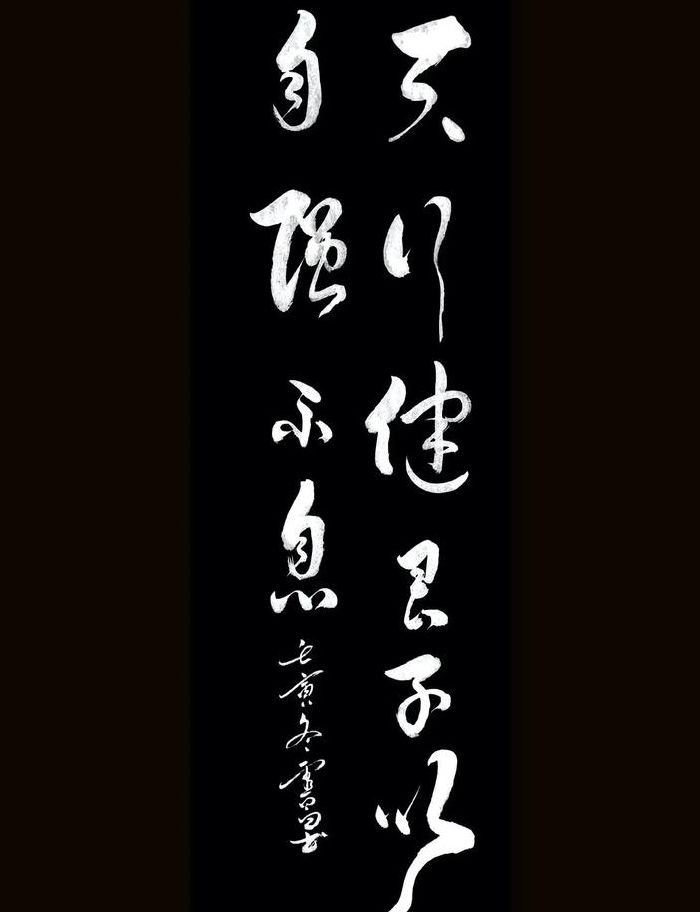 天行健君子以
自强不息
壬寅冬雪昌书